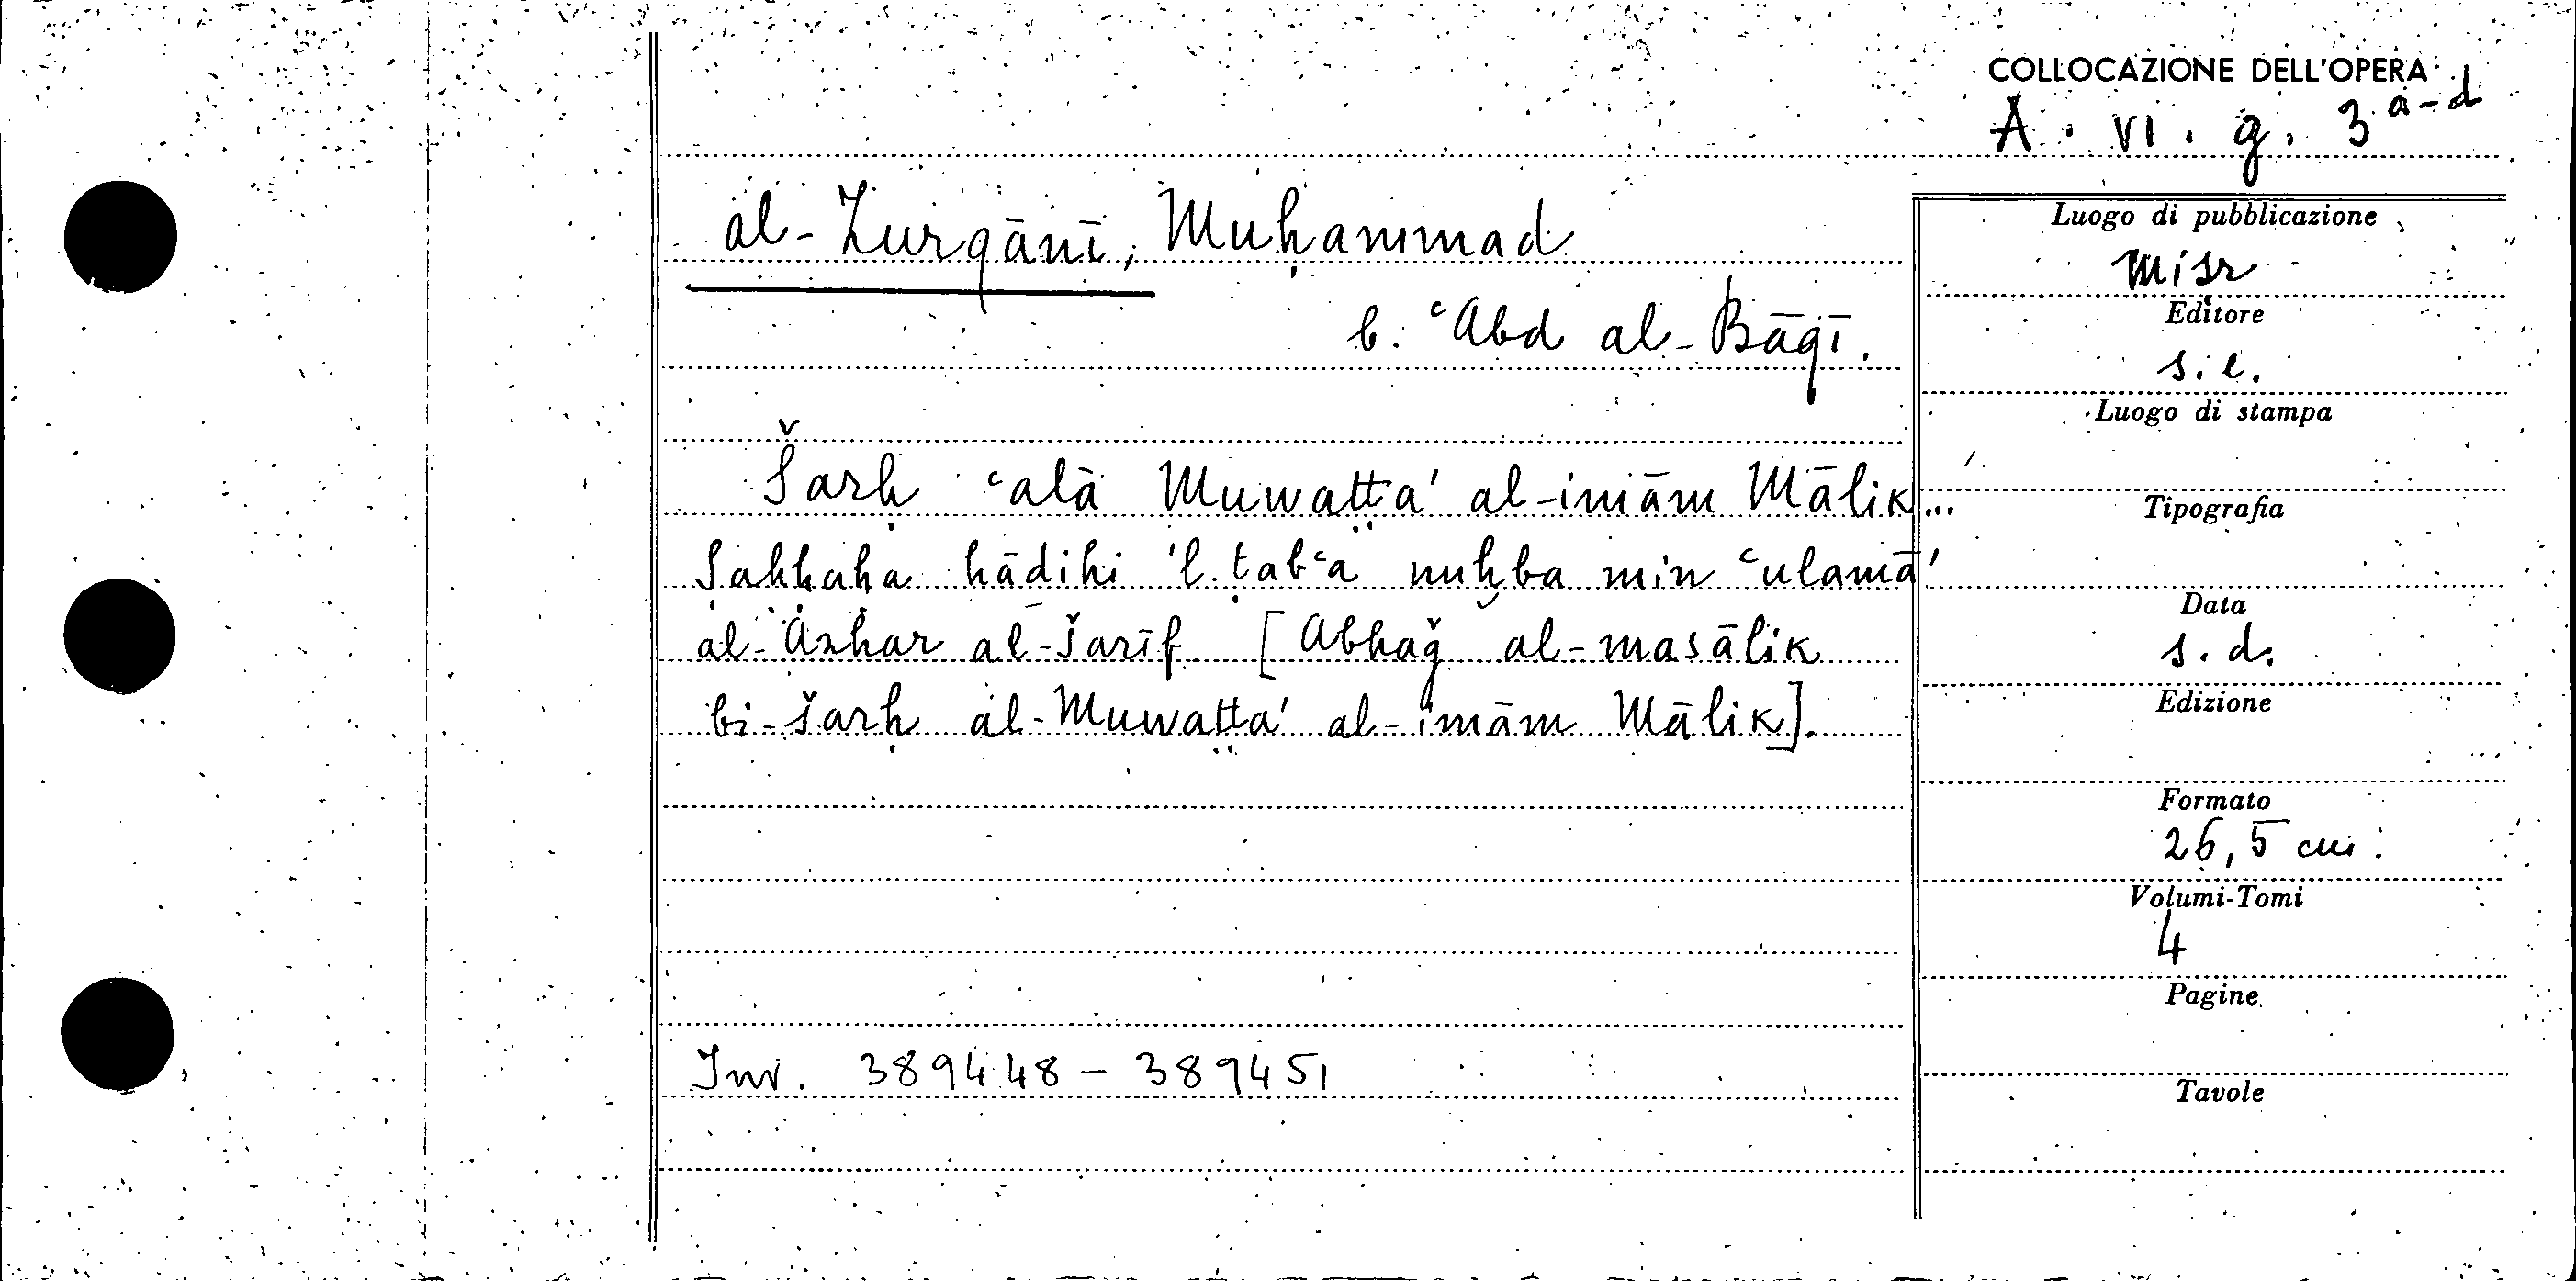 COLLOCAZIONE DELL'OPERA
A. VI. g. 3 a-d
al-Zurqānī, Muḥammad
b. ʿAbd al-Bāqī.
Šarḥ ʿalā Muwaṭṭa' al-imām Mālik...
Ṣaḥḥaḥa hāḏihi 'l-ṭabʿa nuḫba min ʿulamā'
al-Azhar al-šarīf [Abhaǧ al-masālik
bi-šarḥ al-Muwaṭṭa' al-imām Mālik].
Inv. 389448 - 389451
Luogo di pubblicazione
Miṣr
Editore
s.e.
Luogo di stampa
Tipografia
Data
s.d.
Edizione
Formato
26,5 cm.
Volumi-Tomi
4
Pagine
Tavole